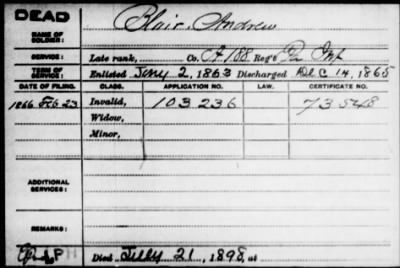 DEAD
NAME OF SOLDIER: Blair, Andrew
SERVICE: Late rank, Co. A, 188 Reg't Pa Inf
TERM OF SERVICE: Enlisted Jany 2, 1863 Discharged Dec 14, 1865
DATE OF FILING. CLASS. APPLICATION NO. LAW. CERTIFICATE NO.
1866 Feb 23 Invalid, 103236 73548
Widow,
Minor,
ADDITIONAL SERVICES:
REMARKS:
Died July 21, 1898, at